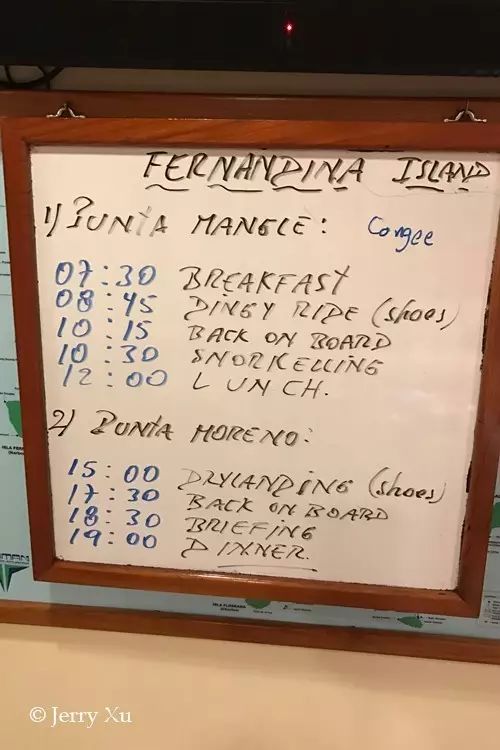 FERNANDINA ISLAND
1) PUNTA MANGLE: Congee
07:30 BREAKFAST
08:45 DINGY RIDE (shoes)
10:15 BACK ON BOARD
10:30 SNORKELLING
12:00 LUNCH.
2) PUNTA MORENO:
15:00 DRYLANDING (shoes)
17:30 BACK ON BOARD
18:30 BRIEFING
19:00 DINNER.
ISLA FLOREANA
© Jerry Xu